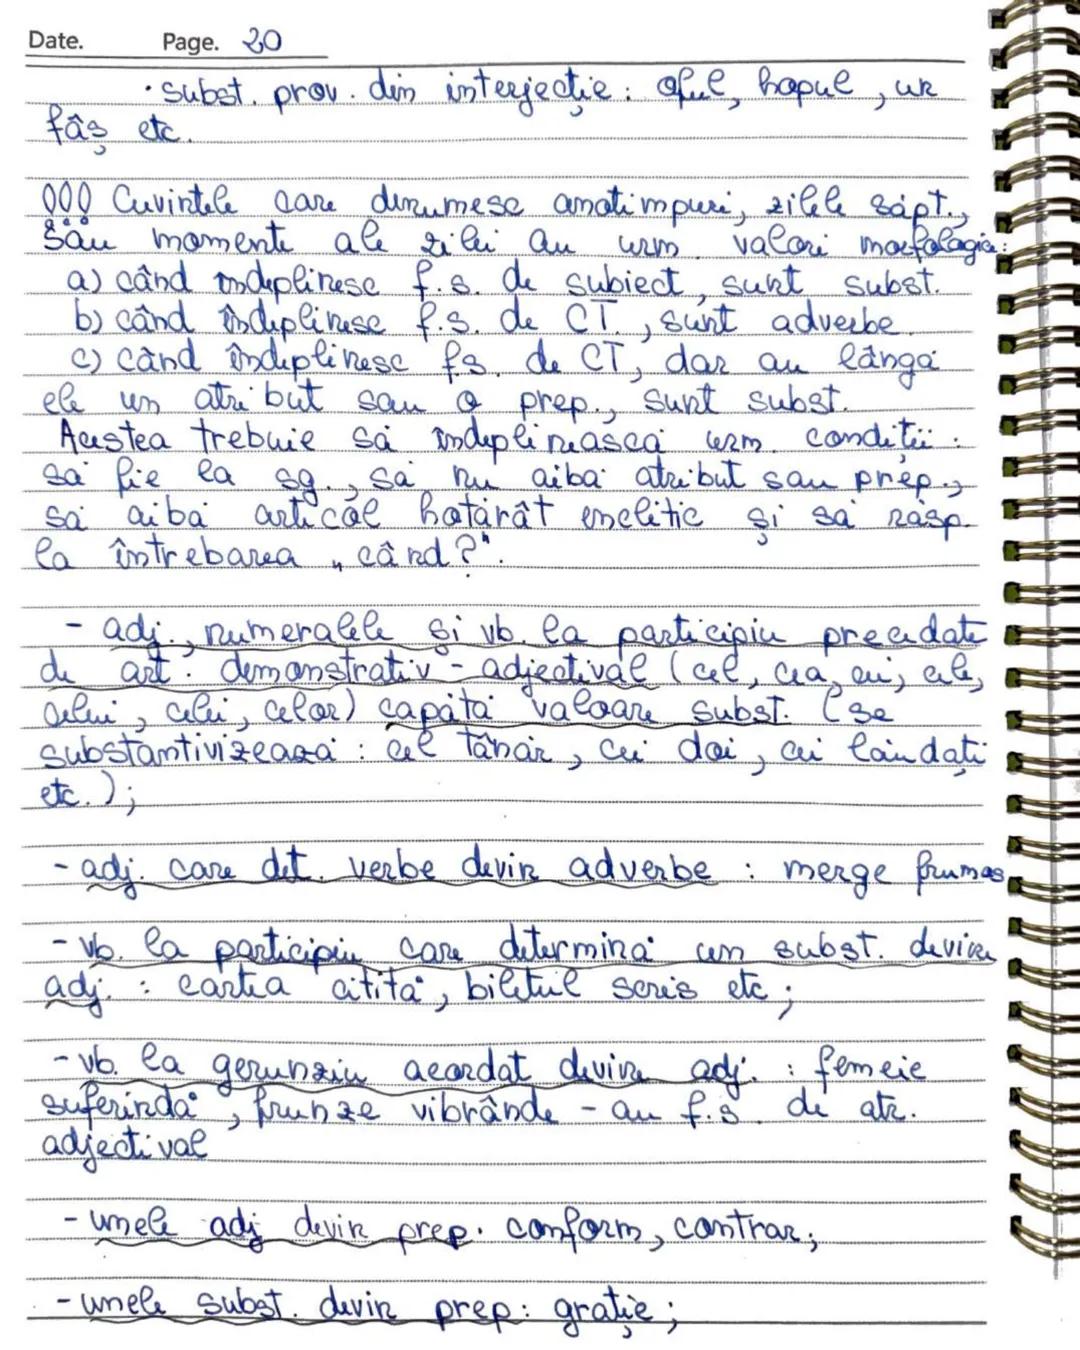 Date. Page. 20
• subst. prov. din interjecție: oful, hopul, un
fâș etc.
!!! Cuvintele care denumesc anotimpuri, zilele săpt.,
sau momente ale zilei au urm. valori morfologice:
a) când îndeplinesc f.s. de subiect, sunt subst.
b) când îndeplinesc f.s. de CT., sunt adverbe.
c) când îndeplinesc f.s. de CT, dar au lângă
ele un atribut sau o prep., sunt subst.
Acestea trebuie să îndeplinească urm. condiții:
să fie la sg., să nu aibă atribut sau prep.,
să aibă articol hotărât enclitic și să răsp.
la întrebarea „când?".
- adj., numeralele și vb. la participiu precedate
de art. demonstrativ-adjectival (cel, cea, cei, cele,
celui, celei, celor) capătă valoare subst. (se
substantivizează: cel tânăr, cei doi, cei lăudați
etc.);
- adj. care det. verbe devin adverbe: merge frumos
- vb. la participiu care determină un subst. devine
adj.: cartea citită, biletul scris etc;
- vb. la gerunziu acordat devine adj.: femeie
suferindă, frunze vibrânde - au f.s. de atr.
adjectival
- unele adj devin prep. conform, contrar;
- unele subst. devin prep: grație;